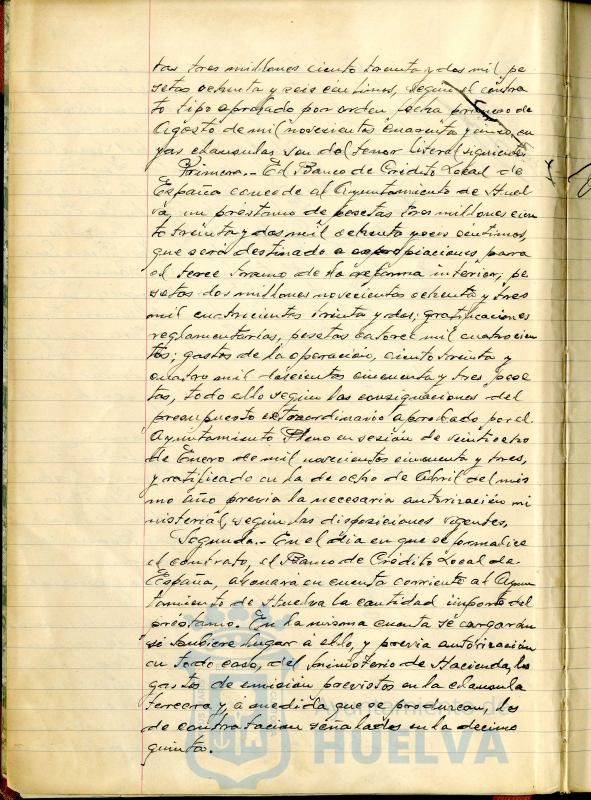 tas tres millones ciento treinta y dos mil pe
setas ochenta y seis céntimos, según el contra
to tipo aprobado por orden fecha primero de
Agosto de mil novecientos cuarenta y cinco, cu
yas clausulas son del tenor literal siguiente:
Primera.- El Banco de Crédito Local de
España concede al Ayuntamiento de Huel
va, un préstamo de pesetas tres millones cien
to treinta y dos mil ochenta y seis céntimos,
que será destinado a expropiaciones, para
el tercer tramo de la reforma interior, pe
setas dos millones novecientas ochenta y tres
mil cuatrocientas treinta y dos; gratificaciones
reglamentarias, pesetas catorce mil cuatrocien
tas; gastos de la operación, ciento treinta y
cuatro mil doscientas cincuenta y tres pese
tas, todo ello según las consignaciones del
presupuesto extraordinario aprobado por el
Ayuntamiento Pleno en sesión de veintiocho
de Enero de mil novecientos cincuenta y tres,
y ratificado en la de ocho de Abril del mis
mo año previa la necesaria autorización mi
nisterial, según las disposiciones vigentes.
Segunda.- En el día en que se formalice
el contrato, el Banco de Crédito Local de
España, abonará en cuenta corriente al Ayun
tamiento de Huelva la cantidad importe del
prestamo. En la misma cuenta se cargarán
si hubiere lugar á ello, y previa autorización
en todo caso, del ministerio de Hacienda, los
gastos de emisión previstos en la clausula
tercera y, á medida que se produzcan, los
de contratación señalados en la decimo
quinta.
Ayuntamiento de
HUELVA